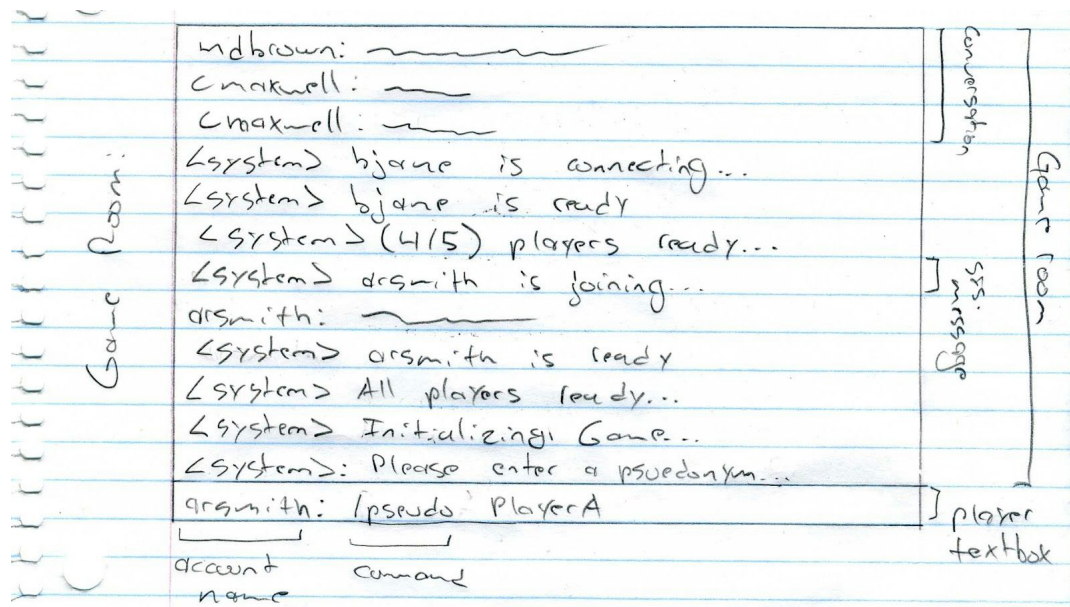 Game Room:
mdbrown:
cmaxwell:
cmaxwell:
<system> bjane is connecting...
<system> bjane is ready
<system> (4/5) players ready...
<system> arsmith is joining...
arsmith:
<system> arsmith is ready
<system> All players ready...
<system> Initializing Game...
<system>: Please enter a psuedonym...
arsmith: /pseudo PlayerA
account name
command
conversation
sys. message
Game room
player textbox